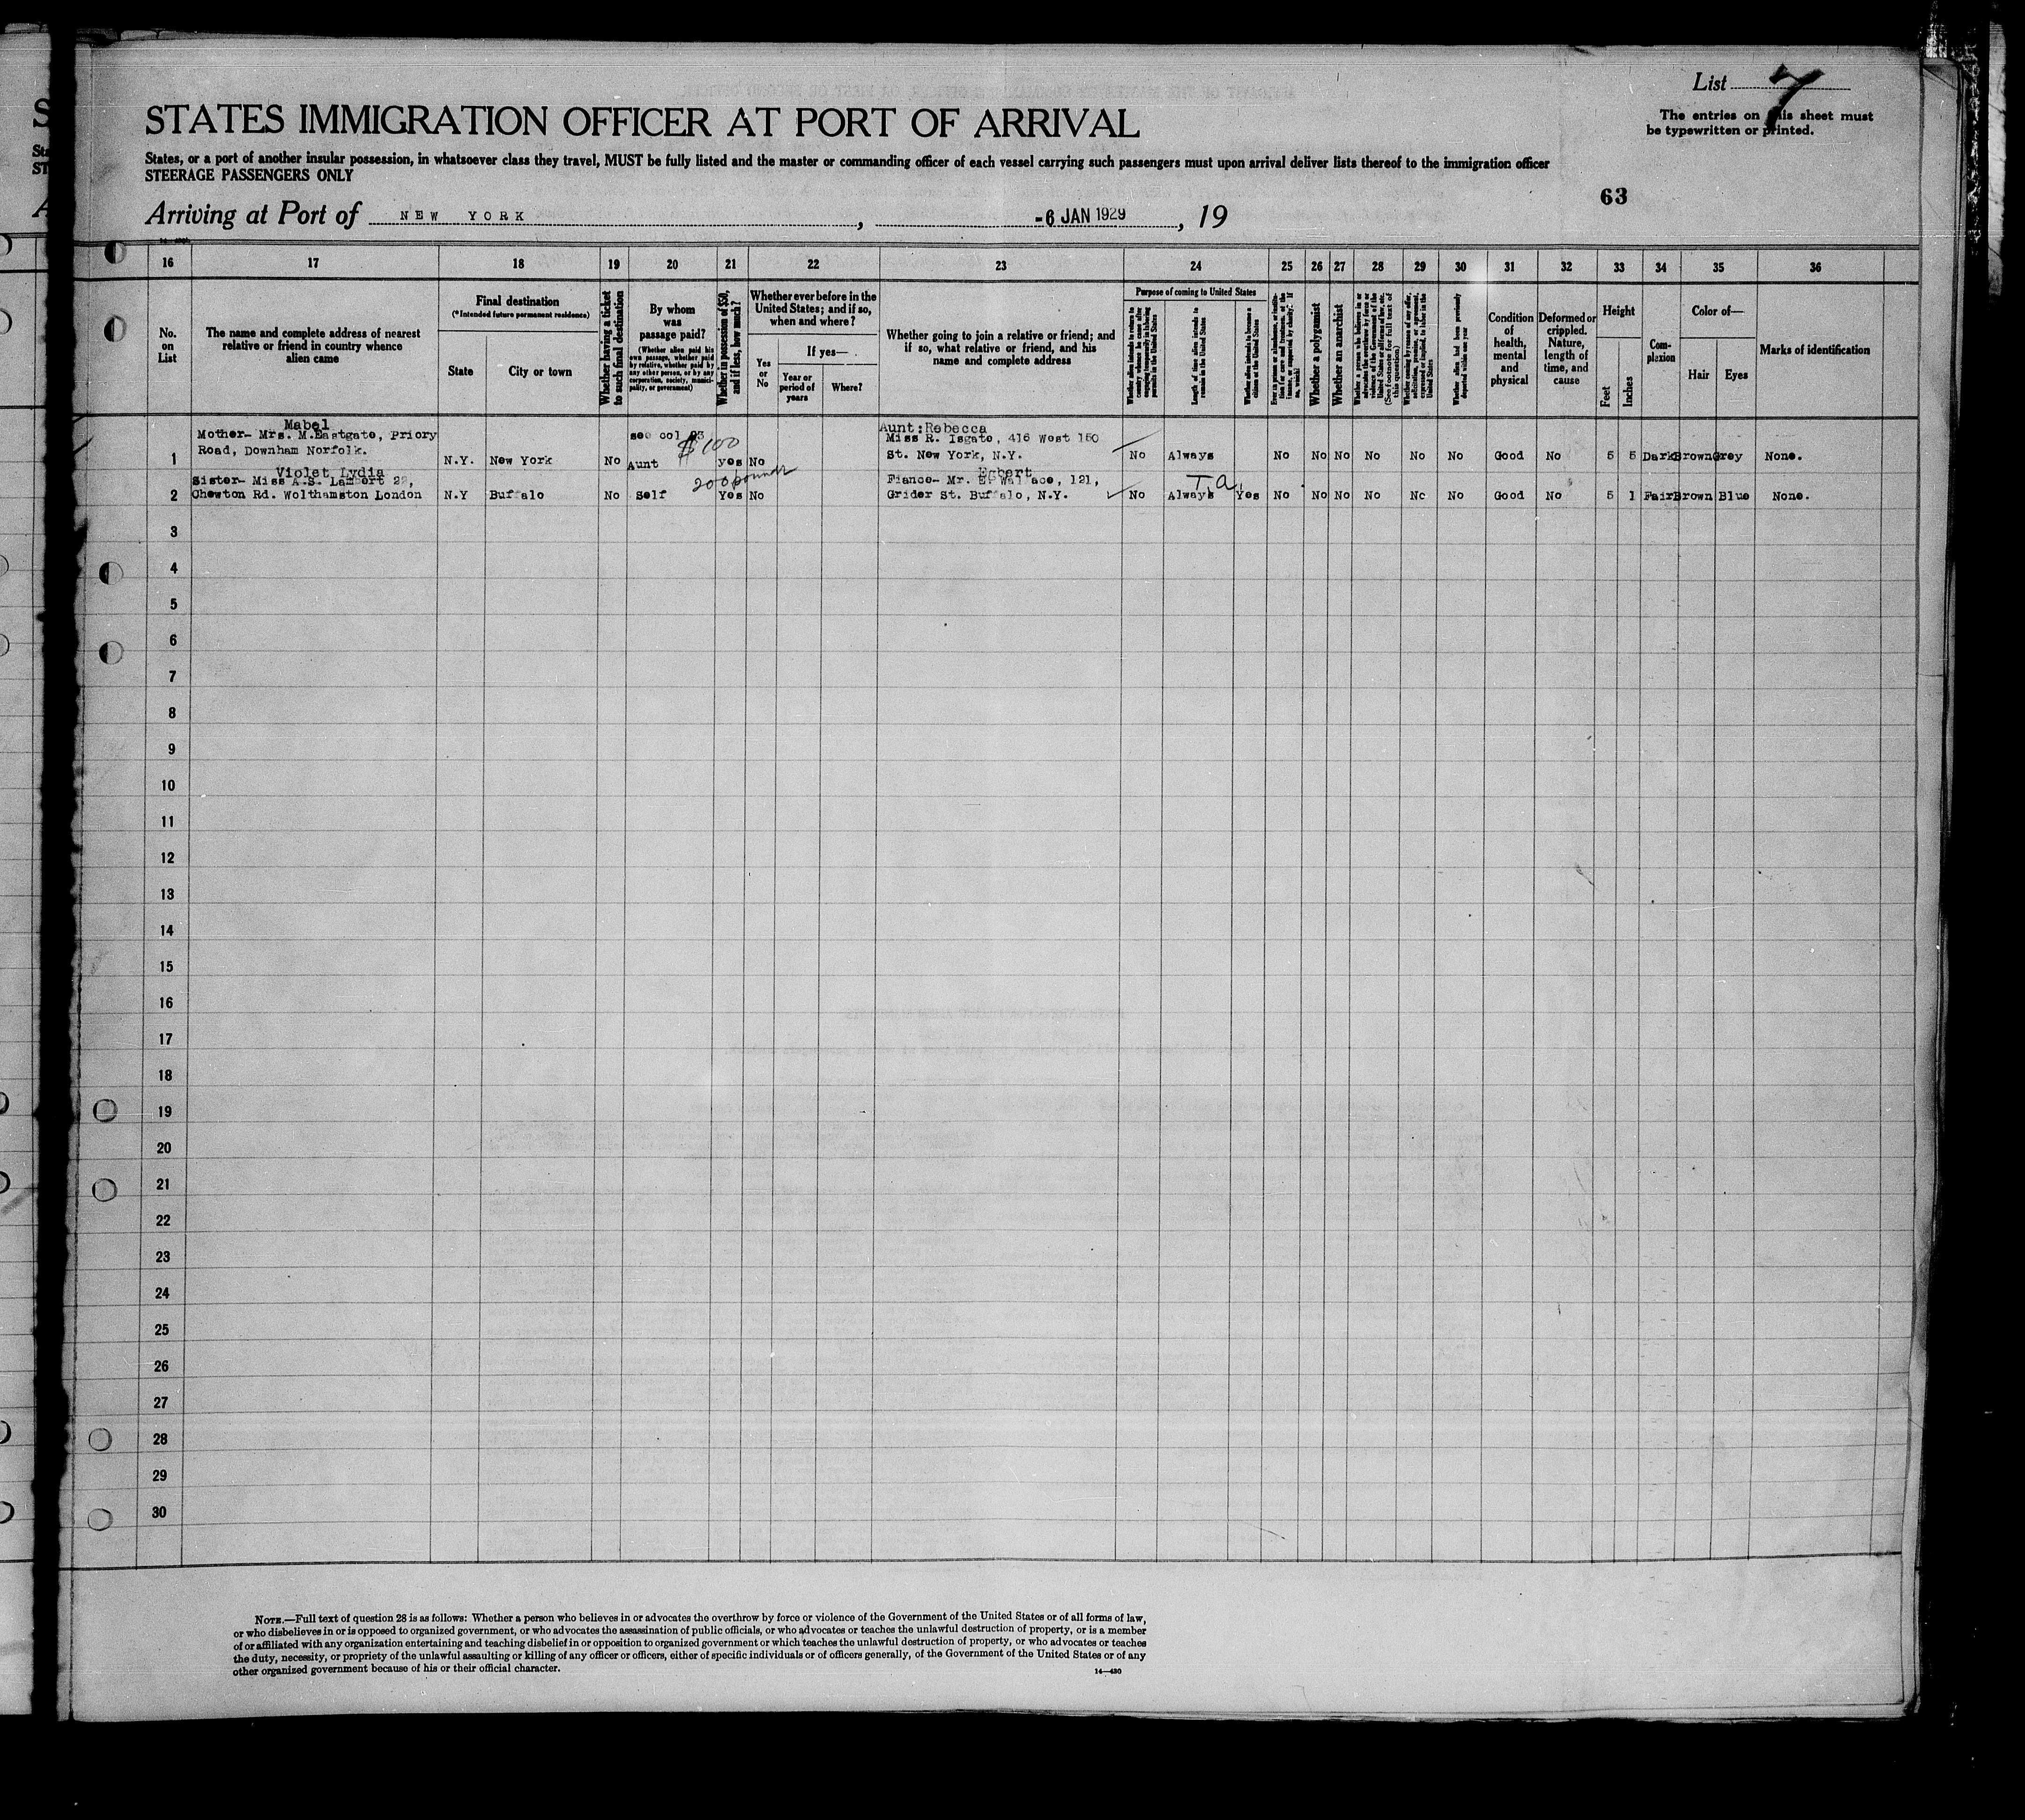 List 7
The entries on this sheet must
be typewritten or printed.
STATES IMMIGRATION OFFICER AT PORT OF ARRIVAL
States, or a port of another insular possession, in whatsoever class they travel, MUST be fully listed and the master or commanding officer of each vessel carrying such passengers must upon arrival deliver lists thereof to the immigration officer
STEERAGE PASSENGERS ONLY
63
Arriving at Port of NEW YORK, -6 JAN 1929, 19
16 17 18 19 20 21 22 23 24 25 26 27 28 29 30 31 32 33 34 35 36
No. on List
The name and complete address of nearest relative or friend in country whence alien came
Final destination
(*Intended future permanent residence)
State
City or town
Whether having a ticket to such final destination
By whom was passage paid?
(Whether alien paid his own passage, whether paid by relative, whether paid by any other person, or by any corporation, society, municipality, or government)
Whether in possession of $50, and if less, how much?
Whether ever before in the United States; and if so, when and where?
Yes or No
If yes—
Year or period of years
Where?
Whether going to join a relative or friend; and if so, what relative or friend, and his name and complete address
Purpose of coming to United States
Length of time alien intends to remain in the United States
Whether alien intends to become a citizen of the United States
Whether a polygamist
Whether an anarchist
(See footnote for full text of this question)
Whether alien had been previously deported within one year
Condition of health, mental and physical
Deformed or crippled. Nature, length of time, and cause
Height
Feet
Inches
Complexion
Color of—
Hair
Eyes
Marks of identification
Mabel
Mother- Mrs. M.Eastgate, Priory
Road, Downham Norfolk.
see col 23
$100
Aunt:Rebecca
Miss R. Isgate, 416 West 150
St. New York, N.Y.
1 N.Y. New York No Aunt yes No No Always No No No No No No Good No 5 5 Dark Brown Grey None.
Violet Lydia
Sister- Miss A.S. Lambert 22,
Chewton Rd. Wolthamston London
200 pounds
Egbert
Fiance- Mr. E. Wallace, 121,
Grider St. Buffalo, N.Y.
T.a.
2 N.Y Buffalo No Self Yes No No Always Yes No No No No No No Good No 5 1 Fair Brown Blue None.
3
4
5
6
7
8
9
10
11
12
13
14
15
16
17
18
19
20
21
22
23
24
25
26
27
28
29
30
NOTE.—Full text of question 28 is as follows: Whether a person who believes in or advocates the overthrow by force or violence of the Government of the United States or of all forms of law,
or who disbelieves in or is opposed to organized government, or who advocates the assassination of public officials, or who advocates or teaches the unlawful destruction of property, or is a member
of or affiliated with any organization entertaining and teaching disbelief in or opposition to organized government or which teaches the unlawful destruction of property, or who advocates or teaches
the duty, necessity, or propriety of the unlawful assaulting or killing of any officer or officers, either of specific individuals or of officers generally, of the Government of the United States or of any
other organized government because of his or their official character.
14—430